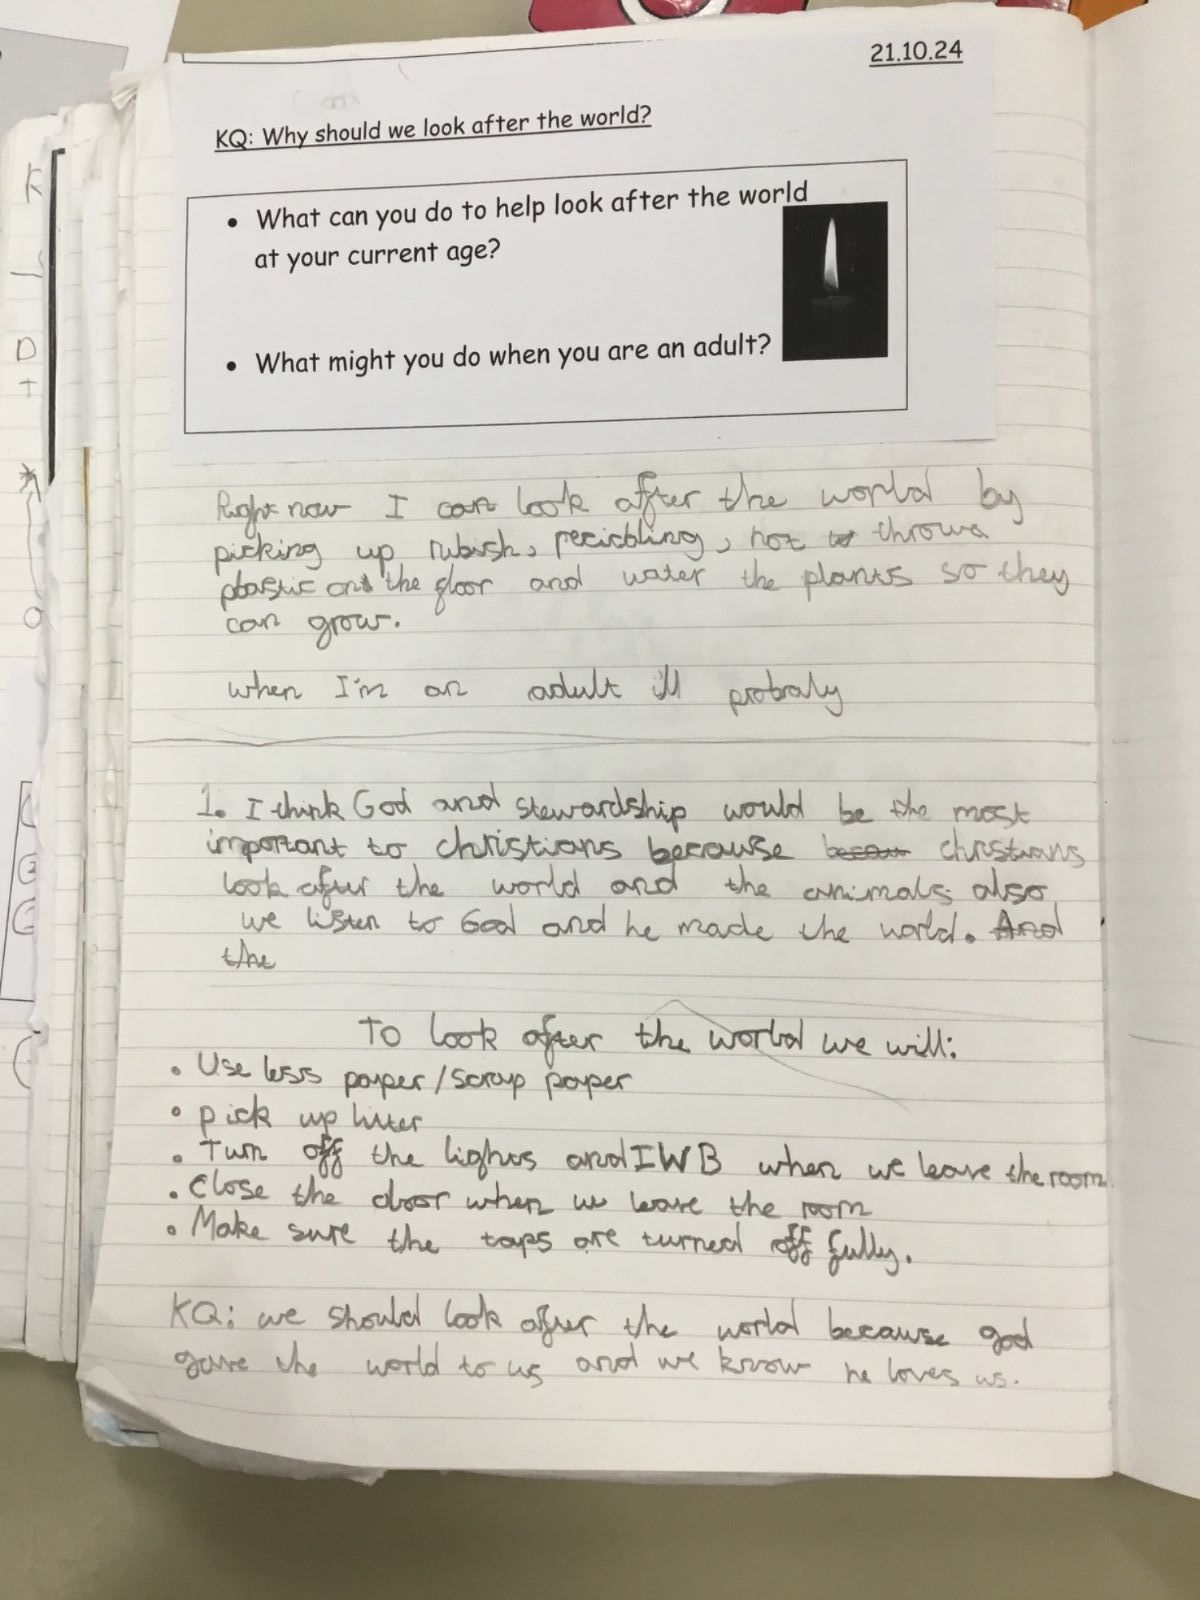 21.10.24
KQ: Why should we look after the world?
• What can you do to help look after the world
at your current age?
• What might you do when you are an adult?
Right now I can look after the world by
picking up rubish, recicbling, not throwa
plastic on the floor and water the plants so they
can grow.
when I'm an adult ill probraly
1. I think God and stewardship would be the most
important to christians because christians
look after the world and the animals also
we listen to God and he made the world. And
the
To look after the world we will:
• Use less paper/scrap paper
• pick up litter
• Turn off the lights and IWB when we leave the room.
• Close the door when we leave the room
• Make sure the taps are turned off fully.
KQ: we should look after the world because god
gave the world to us and we know he loves us.